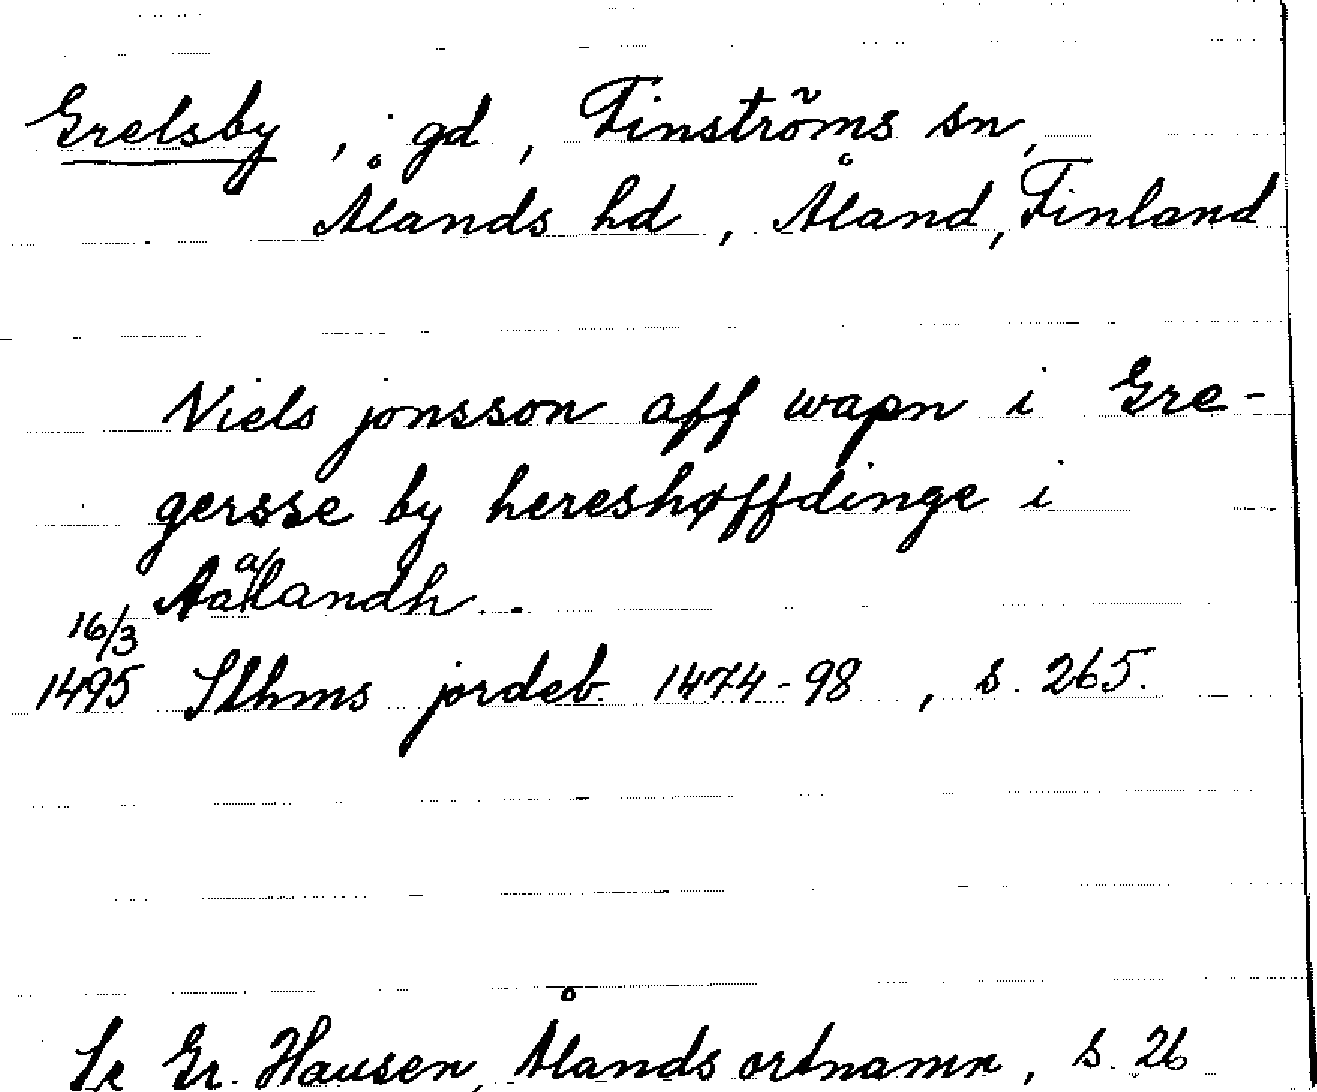 Grelsby, gd, Finströms sn,
Ålands hd, Åland, Finland
Niels jonsson aff wapn i Gre-
gersse by hereshøffdinge i
Aaalandh.
16/3
1495 Sthms jordeb. 1474-98, s. 265.
Se Gr. Hausen, Ålands ortnamn, s. 26